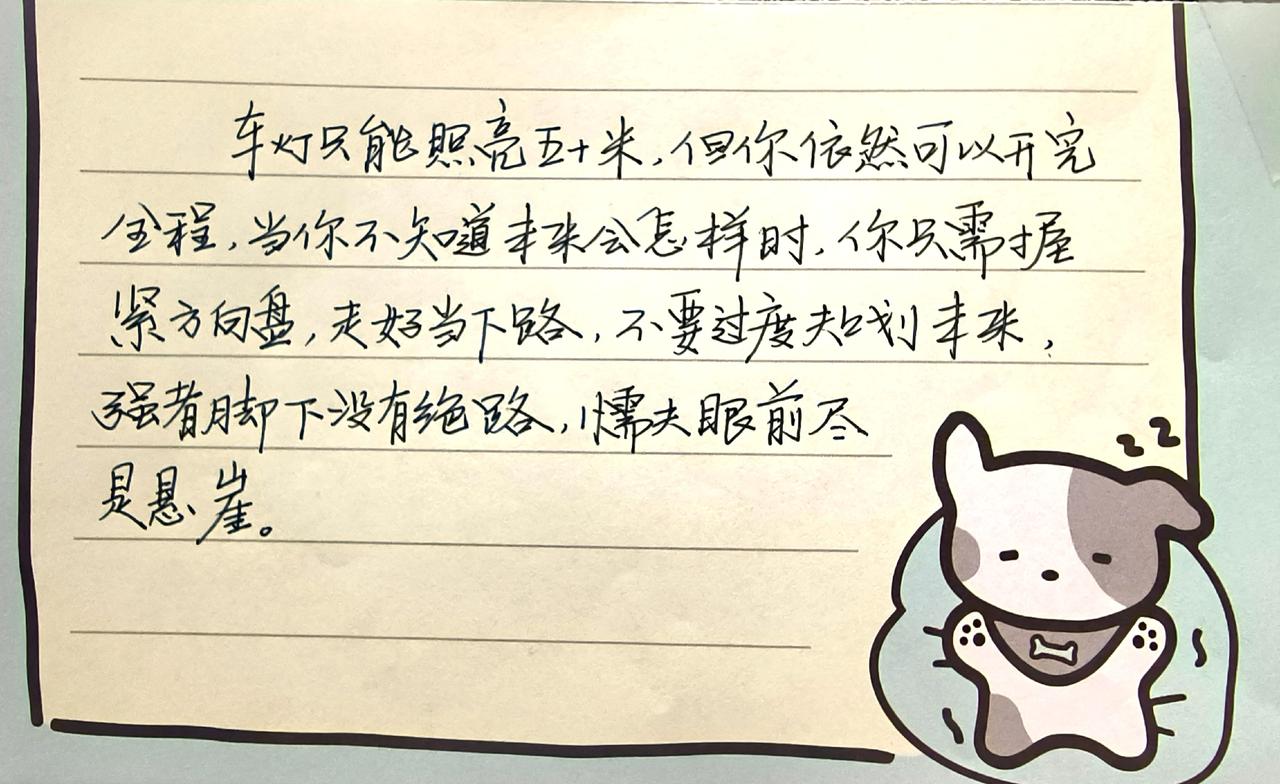 车灯只能照亮五十米,但你依然可以开完
全程,当你不知道未来会怎样时,你只需握
紧方向盘,走好当下路,不要过度规划未来,
强者脚下没有绝路,懦夫眼前尽
是悬崖。
zz